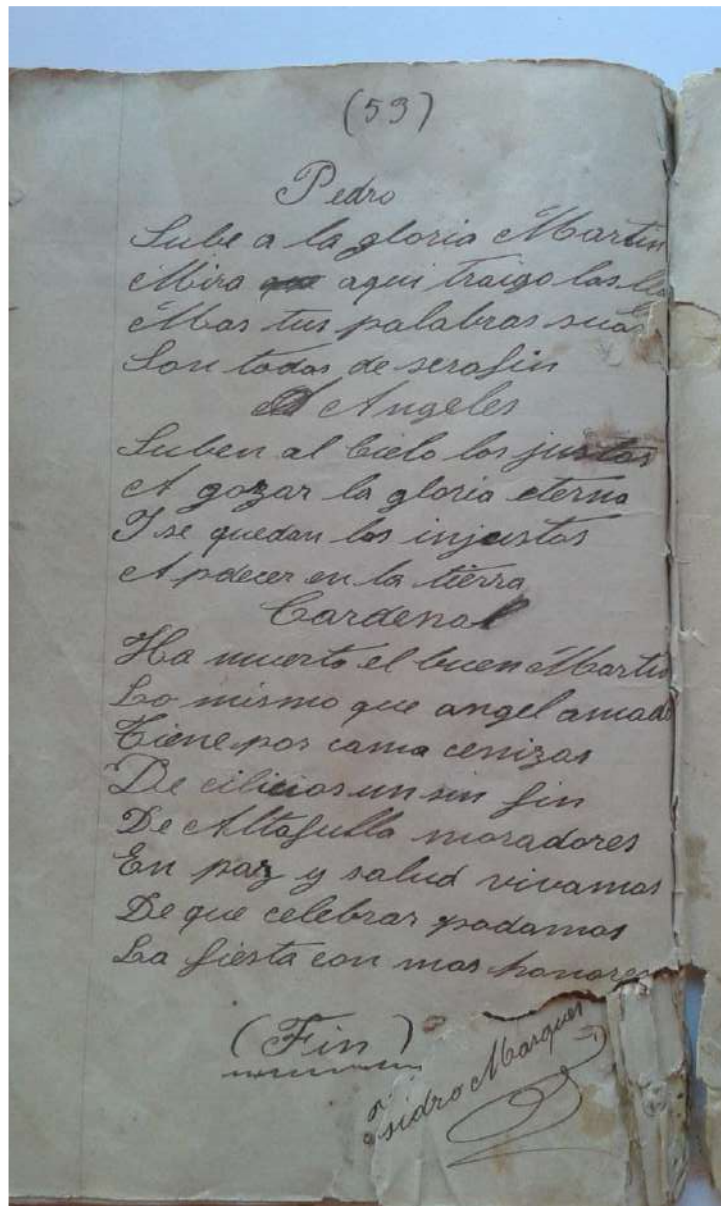 (53)
Pedro
Sube a la gloria Martin
Mira aqui traigo las
Mas tus palabras
Son todas de serafin
Angeles
Suben al Cielo los justos
A gozar la gloria eterna
I se quedan los injustos
A pdecer en la tierra
Cardenal
Ha muerto el buen Martin
Lo mismo que angel amado
Tiene por cama cenizas
De cilicios un sin fin
De Altafulla moradores
En paz y salud vivamos
De que celebrar podamos
La fiesta con mas honores
(Fin)
Isidro Marques